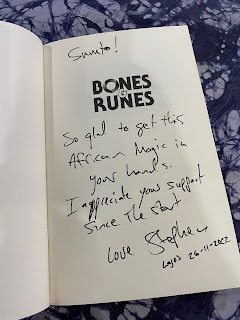 Sumto!
BONES
&
RUNES
So glad to get this
African Magic in
your hands.
I appreciate your support
since the start
Love Stephen
Lagos 26-11-2022